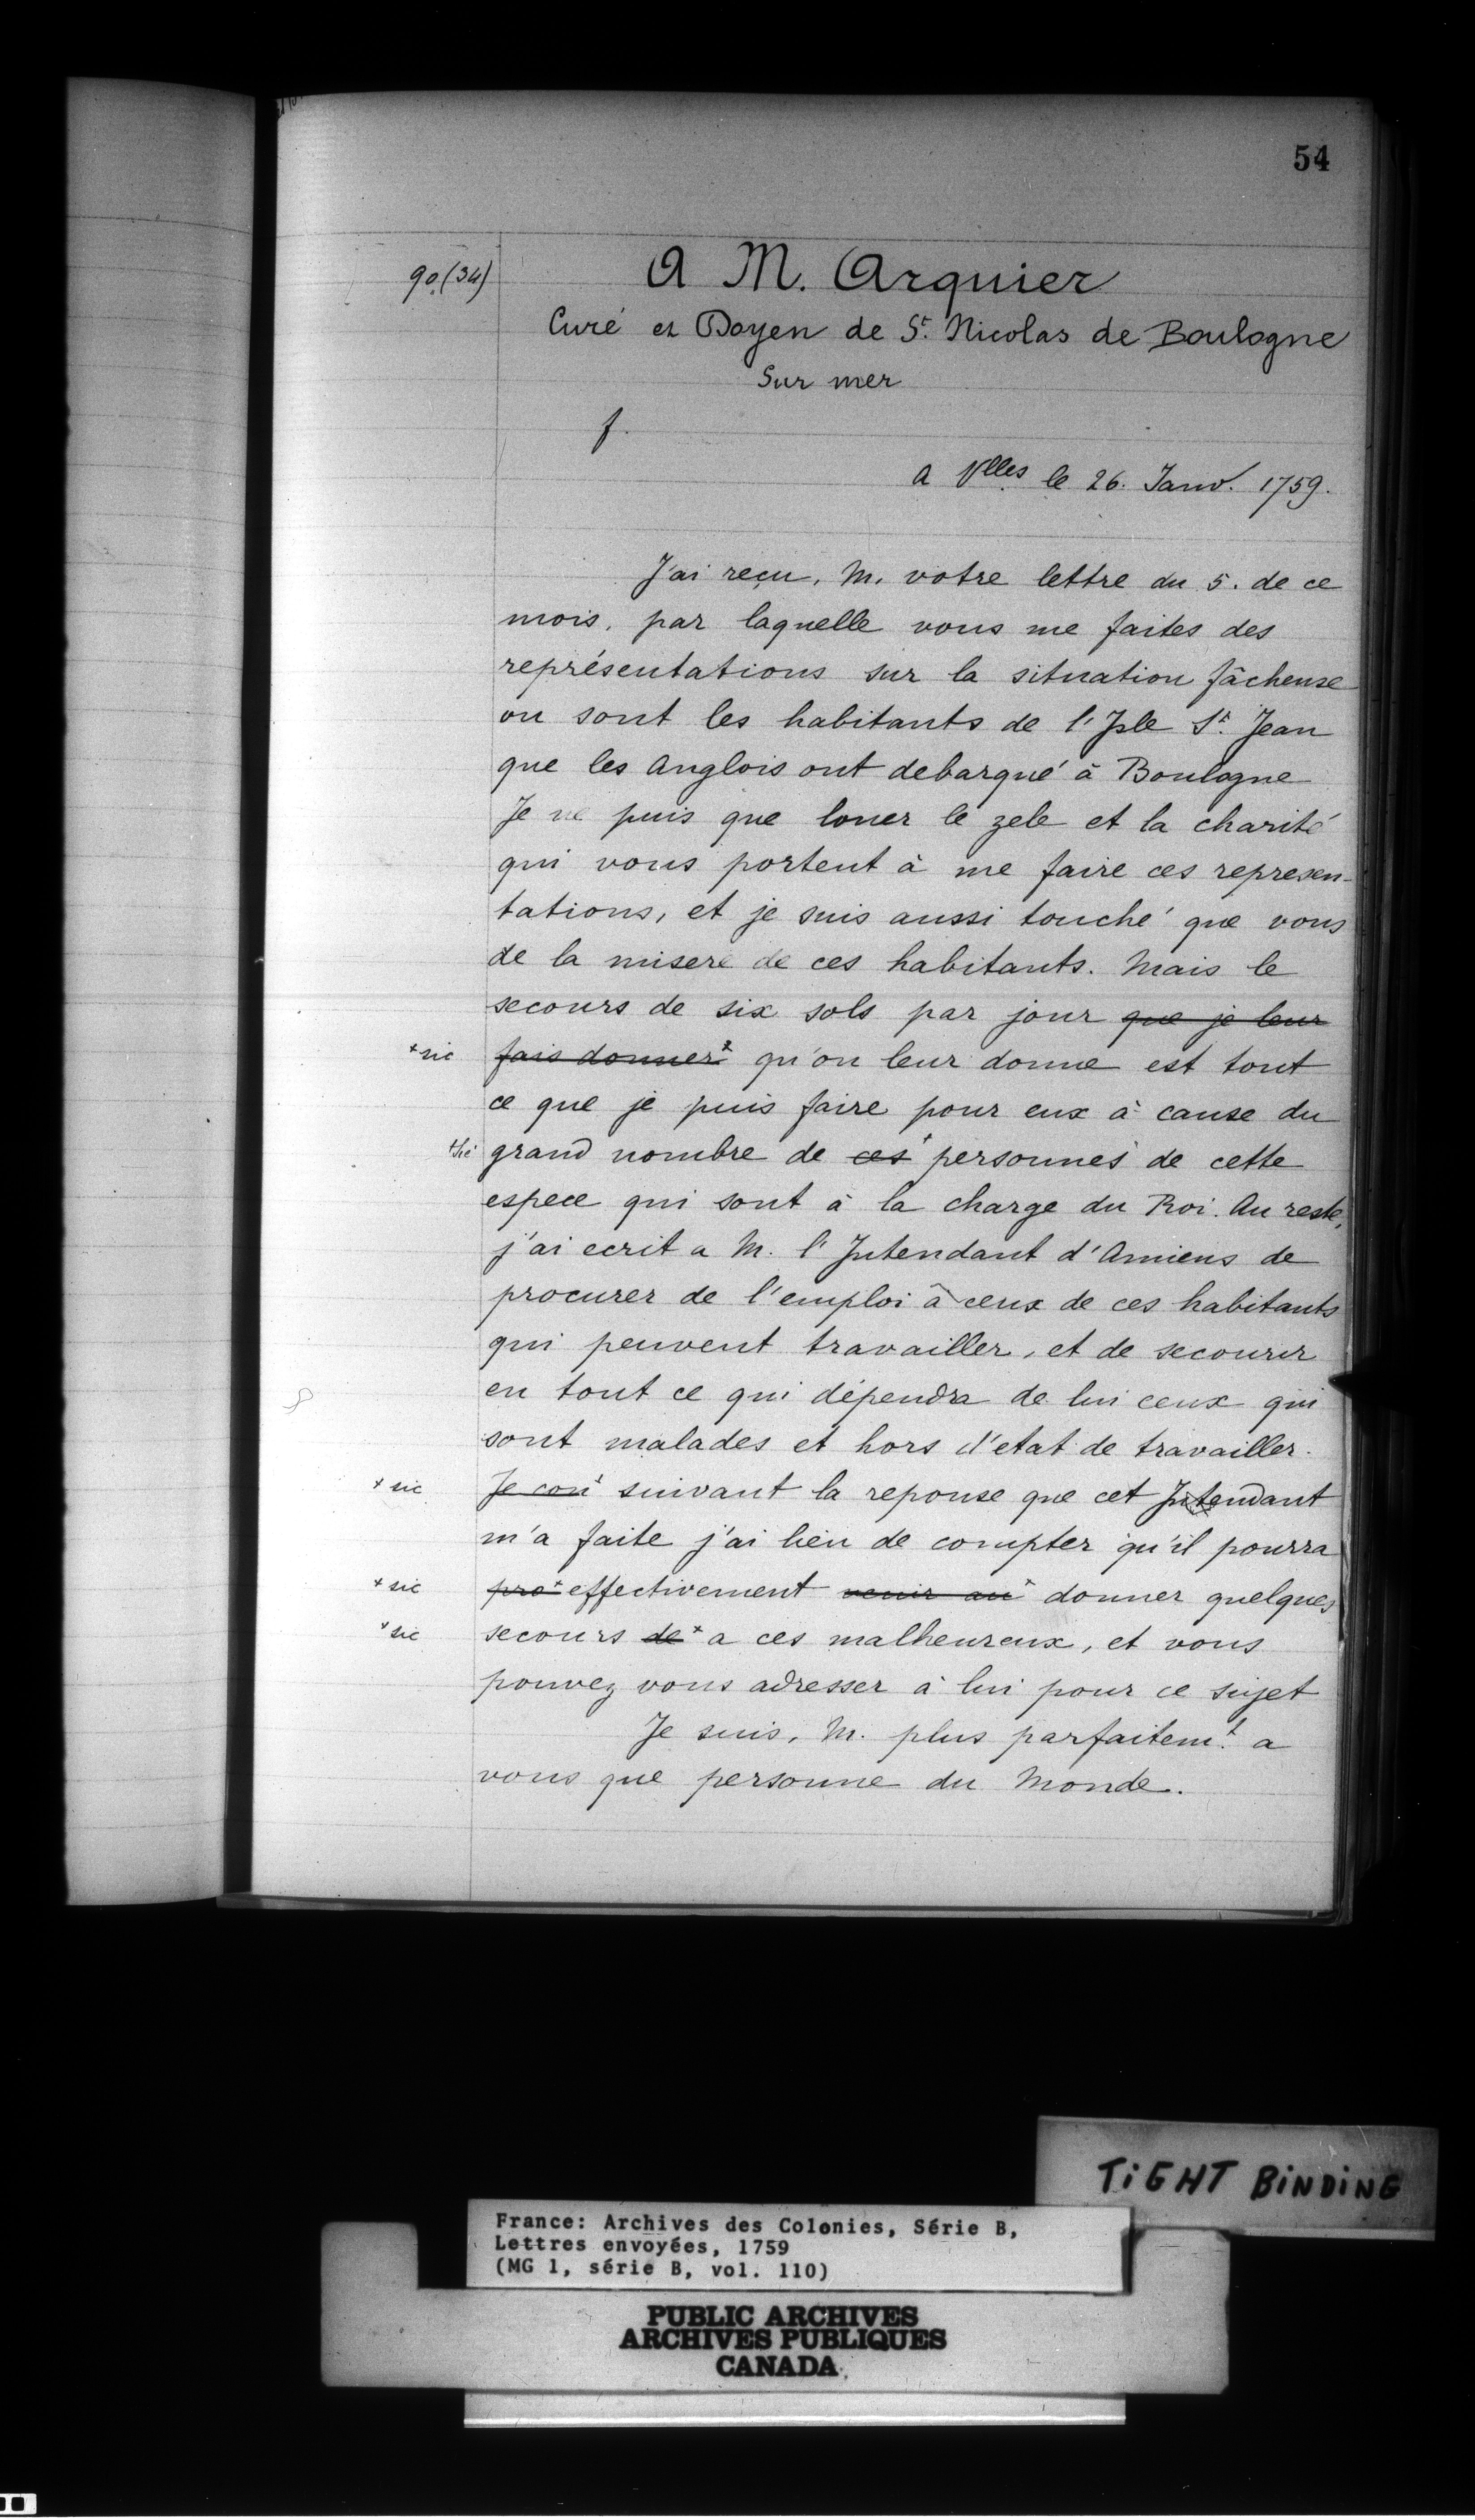 54
90.(34)
A M. Arquier
Curé et Doyen de St. Nicolas de Boulogne
Sur mer
f.
a Vlles le 26. Janv. 1759.
J'ai reçu, M. votre lettre du 5. de ce
mois, par laquelle vous me faites des
représentations sur la situation fâcheuse
ou sont les habitants de l'Isle St. Jean
que les Anglois ont debarqué à Boulogne
Je ne puis que louer le zele et la charité
qui vous portent à me faire ces represen-
tations, et je suis aussi touché que vous
de la misere de ces habitants. Mais le
secours de six sols par jour que je leur
+ sic fais donner+ qu'on leur donne est tout
ce que je puis faire pour eux à cause du
+ sic grand nombre de ces+ personnes de cette
espece qui sont à la charge du Roi. Au reste,
j'ai ecrit a M. l'Intendant d'Amiens de
procurer de l'emploi à ceux de ces habitants
qui peuvent travailler, et de secourir
en tout ce qui dépendra de lui ceux qui
sont malades et hors d'etat de travailler.
+ sic Je con+ suivant la reponse que cet Intendant
m'a faite j'ai lieu de compter qu'il pourra
+ sic pro+ effectivement venir au+ donner quelques
+ sic secours de+ a ces malheureux, et vous
pouvez vous adresser à lui pour ce sujet
Je suis, M. plus parfaitemt. a
vous que personne du Monde.
TiGHT BiNDiNG
France: Archives des Colonies, Série B,
Lettres envoyées, 1759
(MG 1, série B, vol. 110)
PUBLIC ARCHIVES
ARCHIVES PUBLIQUES
CANADA